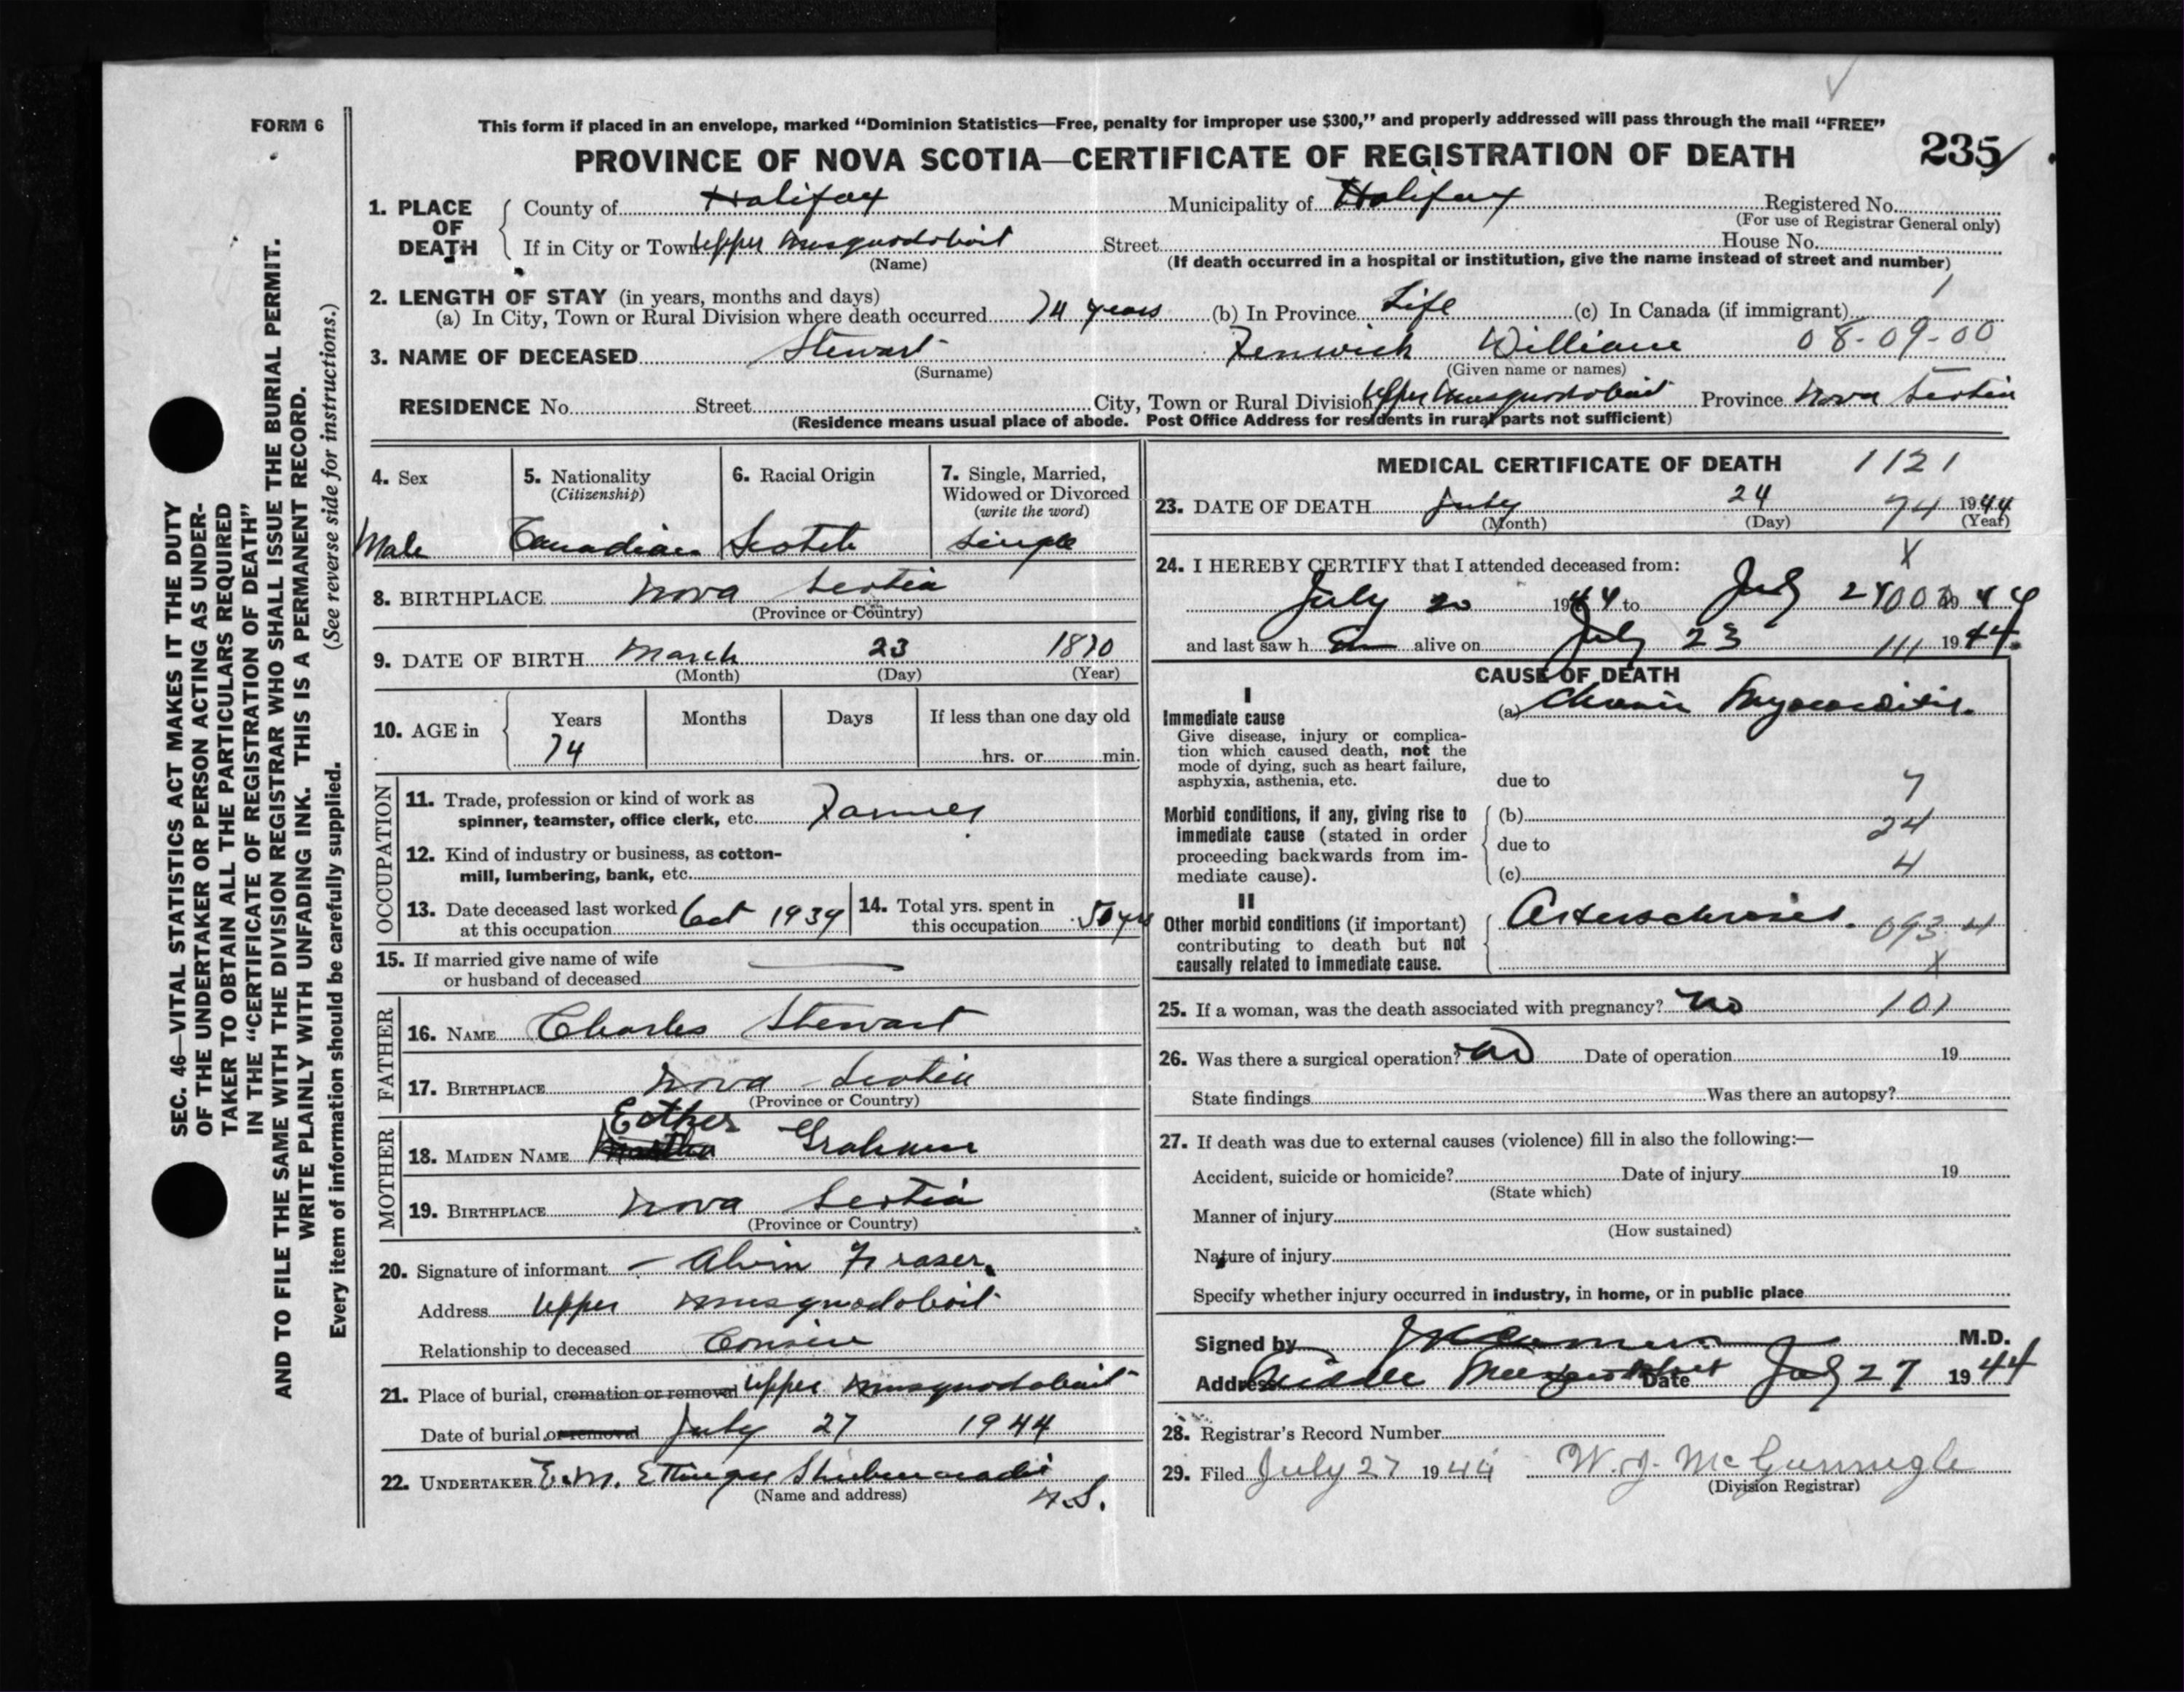 FORM 6
This form if placed in an envelope, marked “Dominion Statistics—Free, penalty for improper use $300,” and properly addressed will pass through the mail “FREE”
PROVINCE OF NOVA SCOTIA—CERTIFICATE OF REGISTRATION OF DEATH
235
1. PLACE OF DEATH
County of Halifax Municipality of Halifax Registered No.
(For use of Registrar General only)
If in City or Town Upper Musquodoboit Street House No.
(Name)
(If death occurred in a hospital or institution, give the name instead of street and number)
2. LENGTH OF STAY (in years, months and days)
(a) In City, Town or Rural Division where death occurred 74 years (b) In Province Life (c) In Canada (if immigrant)
1
3. NAME OF DECEASED Stewart Fenwick William 08-09-00
(Surname) (Given name or names)
RESIDENCE No. Street City, Town or Rural Division Upper Musquodoboit Province Nova Scotia
(Residence means usual place of abode. Post Office Address for residents in rural parts not sufficient)
4. Sex Male
5. Nationality (Citizenship) Canadian
6. Racial Origin Scotch
7. Single, Married, Widowed or Divorced (write the word) Single
8. BIRTHPLACE Nova Scotia
(Province or Country)
9. DATE OF BIRTH March 23 1870
(Month) (Day) (Year)
10. AGE in Years Months Days If less than one day old
74 hrs. or min.
OCCUPATION
11. Trade, profession or kind of work as
spinner, teamster, office clerk, etc. Farmer
12. Kind of industry or business, as cotton-
mill, lumbering, bank, etc.
13. Date deceased last worked at this occupation Oct 1939
14. Total yrs. spent in this occupation 50 yrs
15. If married give name of wife
or husband of deceased
FATHER
16. NAME Charles Stewart
17. BIRTHPLACE Nova Scotia
(Province or Country)
MOTHER
Esther
18. MAIDEN NAME Graham
19. BIRTHPLACE Nova Scotia
(Province or Country)
20. Signature of informant Alvin Fraser
Address Upper Musquodoboit
Relationship to deceased Cousin
21. Place of burial, cremation or removal Upper Musquodoboit
Date of burial or removal July 27 1944
22. UNDERTAKER E.M. Ettinger Shubenacadie
(Name and address) N.S.
MEDICAL CERTIFICATE OF DEATH 1121
23. DATE OF DEATH July 24 74 1944
(Month) (Day) (Year)
X
24. I HEREBY CERTIFY that I attended deceased from:
July 20 1944 to July 24 1944
and last saw h im alive on July 23 111 1944
CAUSE OF DEATH
I
Immediate cause (a) Chronic Myocarditis.
Give disease, injury or complica-
tion which caused death, not the
mode of dying, such as heart failure,
asphyxia, asthenia, etc. due to
7
Morbid conditions, if any, giving rise to (b)
24
immediate cause (stated in order due to
proceeding backwards from im-
4
mediate cause). (c)
II
Other morbid conditions (if important) Arteriosclerosis. 093-4
contributing to death but not
causally related to immediate cause.
X
25. If a woman, was the death associated with pregnancy? no 101
26. Was there a surgical operation? no Date of operation 19
State findings Was there an autopsy?
27. If death was due to external causes (violence) fill in also the following:—
Accident, suicide or homicide? Date of injury 19
(State which)
Manner of injury
(How sustained)
Nature of injury
Specify whether injury occurred in industry, in home, or in public place
Signed by M.D.
Address Middle Musquodoboit Date July 27 1944
28. Registrar's Record Number
29. Filed July 27 1944 W. J. McGunnigle
(Division Registrar)
SEC. 46—VITAL STATISTICS ACT MAKES IT THE DUTY
OF THE UNDERTAKER OR PERSON ACTING AS UNDER-
TAKER TO OBTAIN ALL THE PARTICULARS REQUIRED
IN THE “CERTIFICATE OF REGISTRATION OF DEATH”
AND TO FILE THE SAME WITH THE DIVISION REGISTRAR WHO SHALL ISSUE THE BURIAL PERMIT.
WRITE PLAINLY WITH UNFADING INK. THIS IS A PERMANENT RECORD.
Every item of information should be carefully supplied. (See reverse side for instructions.)